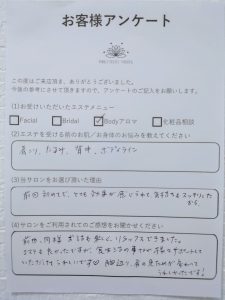 お客様アンケート
この度はご来店頂き、ありがとうございました。
今後の参考にさせて頂きますので、アンケートのご記入をお願いします。
(1)お受けいただいたエステメニュー
Facial Bridal Bodyアロマ 化粧品相談
(2)エステを受ける前のお肌／お身体のお悩みを教えてください
肩こり、たるみ、背中、ボディライン
(3)当サロンをお選び頂いた理由
前回初めてで、とても効果が感じられて気持ちもスッキリした
から。
(4)当サロンをご利用されてのご感想をお聞かせください
前回同様、お話も楽しく、リラックスできました。
エステも良かったですが、
いただけてうれしいです 脚周り、肩の見た目が変わって
うれしかったです！